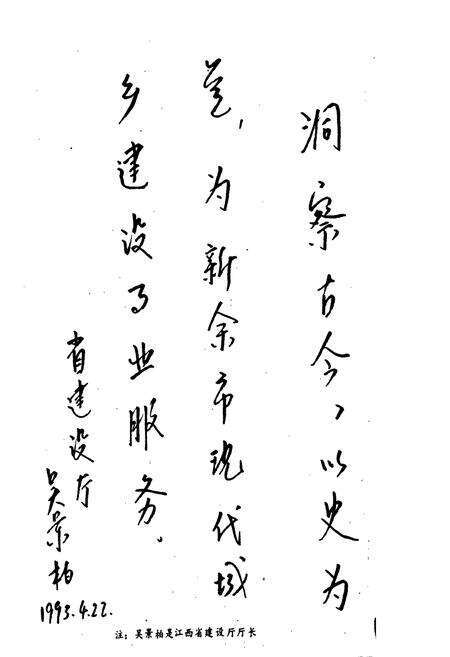 洞察古今、以史为
鉴，为新余市现代城
乡建设事业服务。
省建设厅
吴景柏
1993.4.22.
注：吴景柏是江西省建设厅厅长